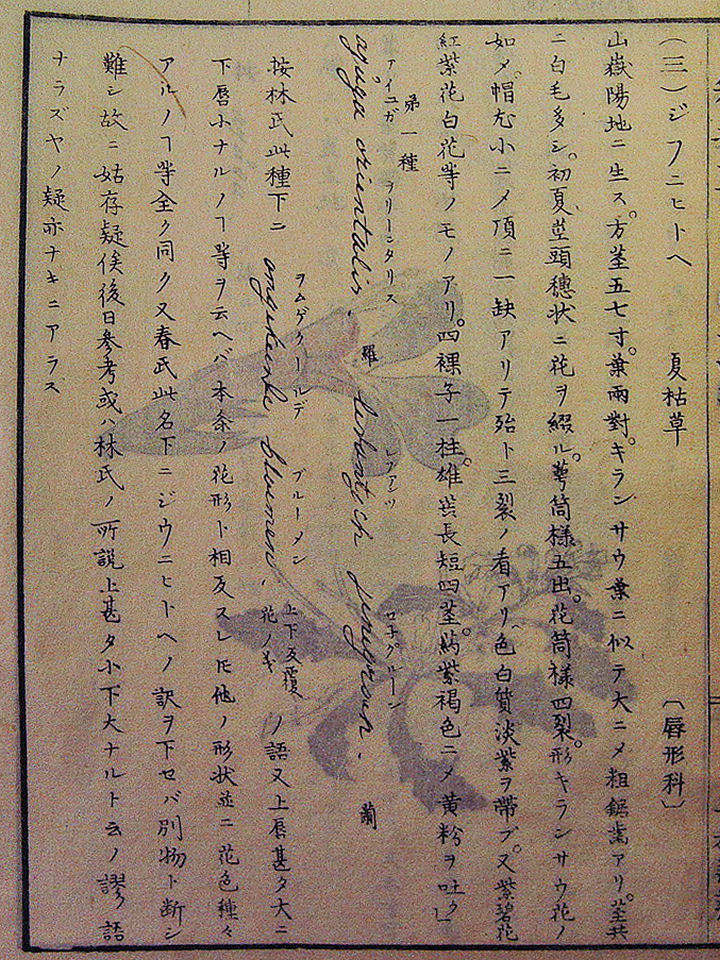 (三)ジフニヒトヘ 夏枯草 〔唇形科〕
山嶽陽地ニ生ス。方茎五七寸。葉兩對。キランサウ葉ニ似テ大ニメ粗鋸歯アリ。茎共
ニ白毛多シ。初夏茎頭穗状ニ花ヲ綴ル。萼筒様五出。花筒様四裂。形キランサウ花ノ
如メ。帽尤小ニメ頂ニ一缺アリテ殆ト三裂ノ看アリ。色白質淡紫ヲ帯ブ。又紫碧花
紅紫花白花等ノモノアリ。四裸子一柱。雄蕊長短四茎。葯紫褐色ニメ黄粉ヲ吐ク
第一種
アイユガ ヲリーンタリス レファンツ ロチグルーン
ajuga orientalis. 羅 蘭
按林氏此種下ニ ヲムゲクールデ ブルーメン omgekeerde bloemen. 上下反覆花ノ義 ノ語又上唇甚タ大ニ
下唇小ナルノヿ等ヲ云ヘバ本条ノ花形ト相反スレ𪜈他ノ形状並ニ花色種々
アルノヿ等全ク同ク又春氏此名下ニジウニヒトヘノ訳ヲ下セバ別物ト断シ
難シ故ニ姑存疑俟後日参考或ハ林氏ノ所説上甚タ小下大ナルト云ノ謬語
ナラズヤノ疑亦ナキニアラズ